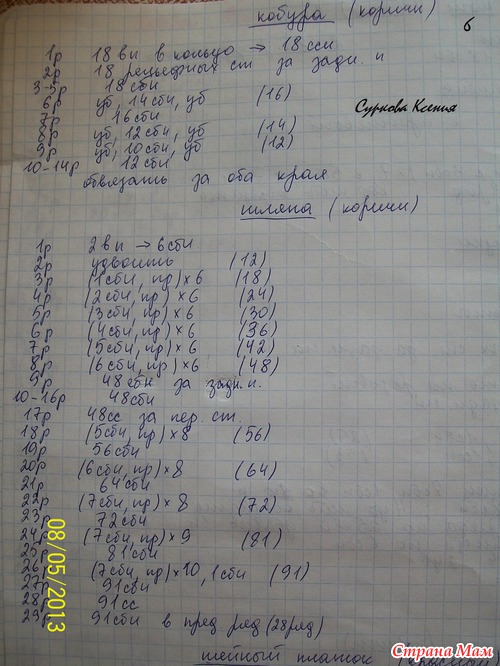 кобура (коричн)
6
1р 18 вп в кольцо → 18 ссн
2р 18 рельефных ст за задн. п
3-5р 18 сбн
6р уб, 14 сбн, уб (16)
Суркова Ксения
7р 16 сбн
8р уб, 12 сбн, уб (14)
9р уб, 10 сбн, уб (12)
10-14р 12 сбн
обвязать за оба края
шляпа (коричн)
1р 2 вп → 6 сбн
2р удвоить (12)
3р (1 сбн, пр) × 6 (18)
4р (2 сбн, пр) × 6 (24)
5р (3 сбн, пр) × 6 (30)
6р (4 сбн, пр) × 6 (36)
7р (5 сбн, пр) × 6 (42)
8р (6 сбн, пр) × 6 (48)
9р 48 сбн за задн. п.
10-16р 48 сбн
17р 48 сс за пер. ст.
18р (5 сбн, пр) × 8 (56)
19р 56 сбн
20р (6 сбн, пр) × 8 (64)
21р 64 сбн
22р (7 сбн, пр) × 8 (72)
23р 72 сбн
24р (7 сбн, пр) × 9 (81)
25р 81 сбн
26р (7 сбн, пр) × 10, 1 сбн (91)
27р 91 сбн
28р 91 сс
29р 91 сбн в пред ряд (28 ряд)
шейный платок
08/05/2013
Страна Мам